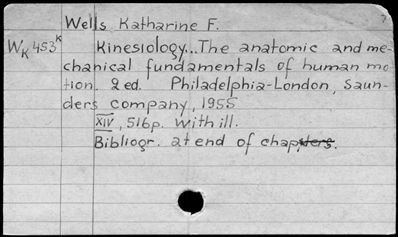 Wells Katharine F.
WK 453K Kinesiology...The anatomic and me-
chanical fundamentals of human mo
tion. 2ed. Philadelphia-London, Saun-
ders company, 1955
XIV, 516p. With ill.
Bibliogr. at end of chapters.